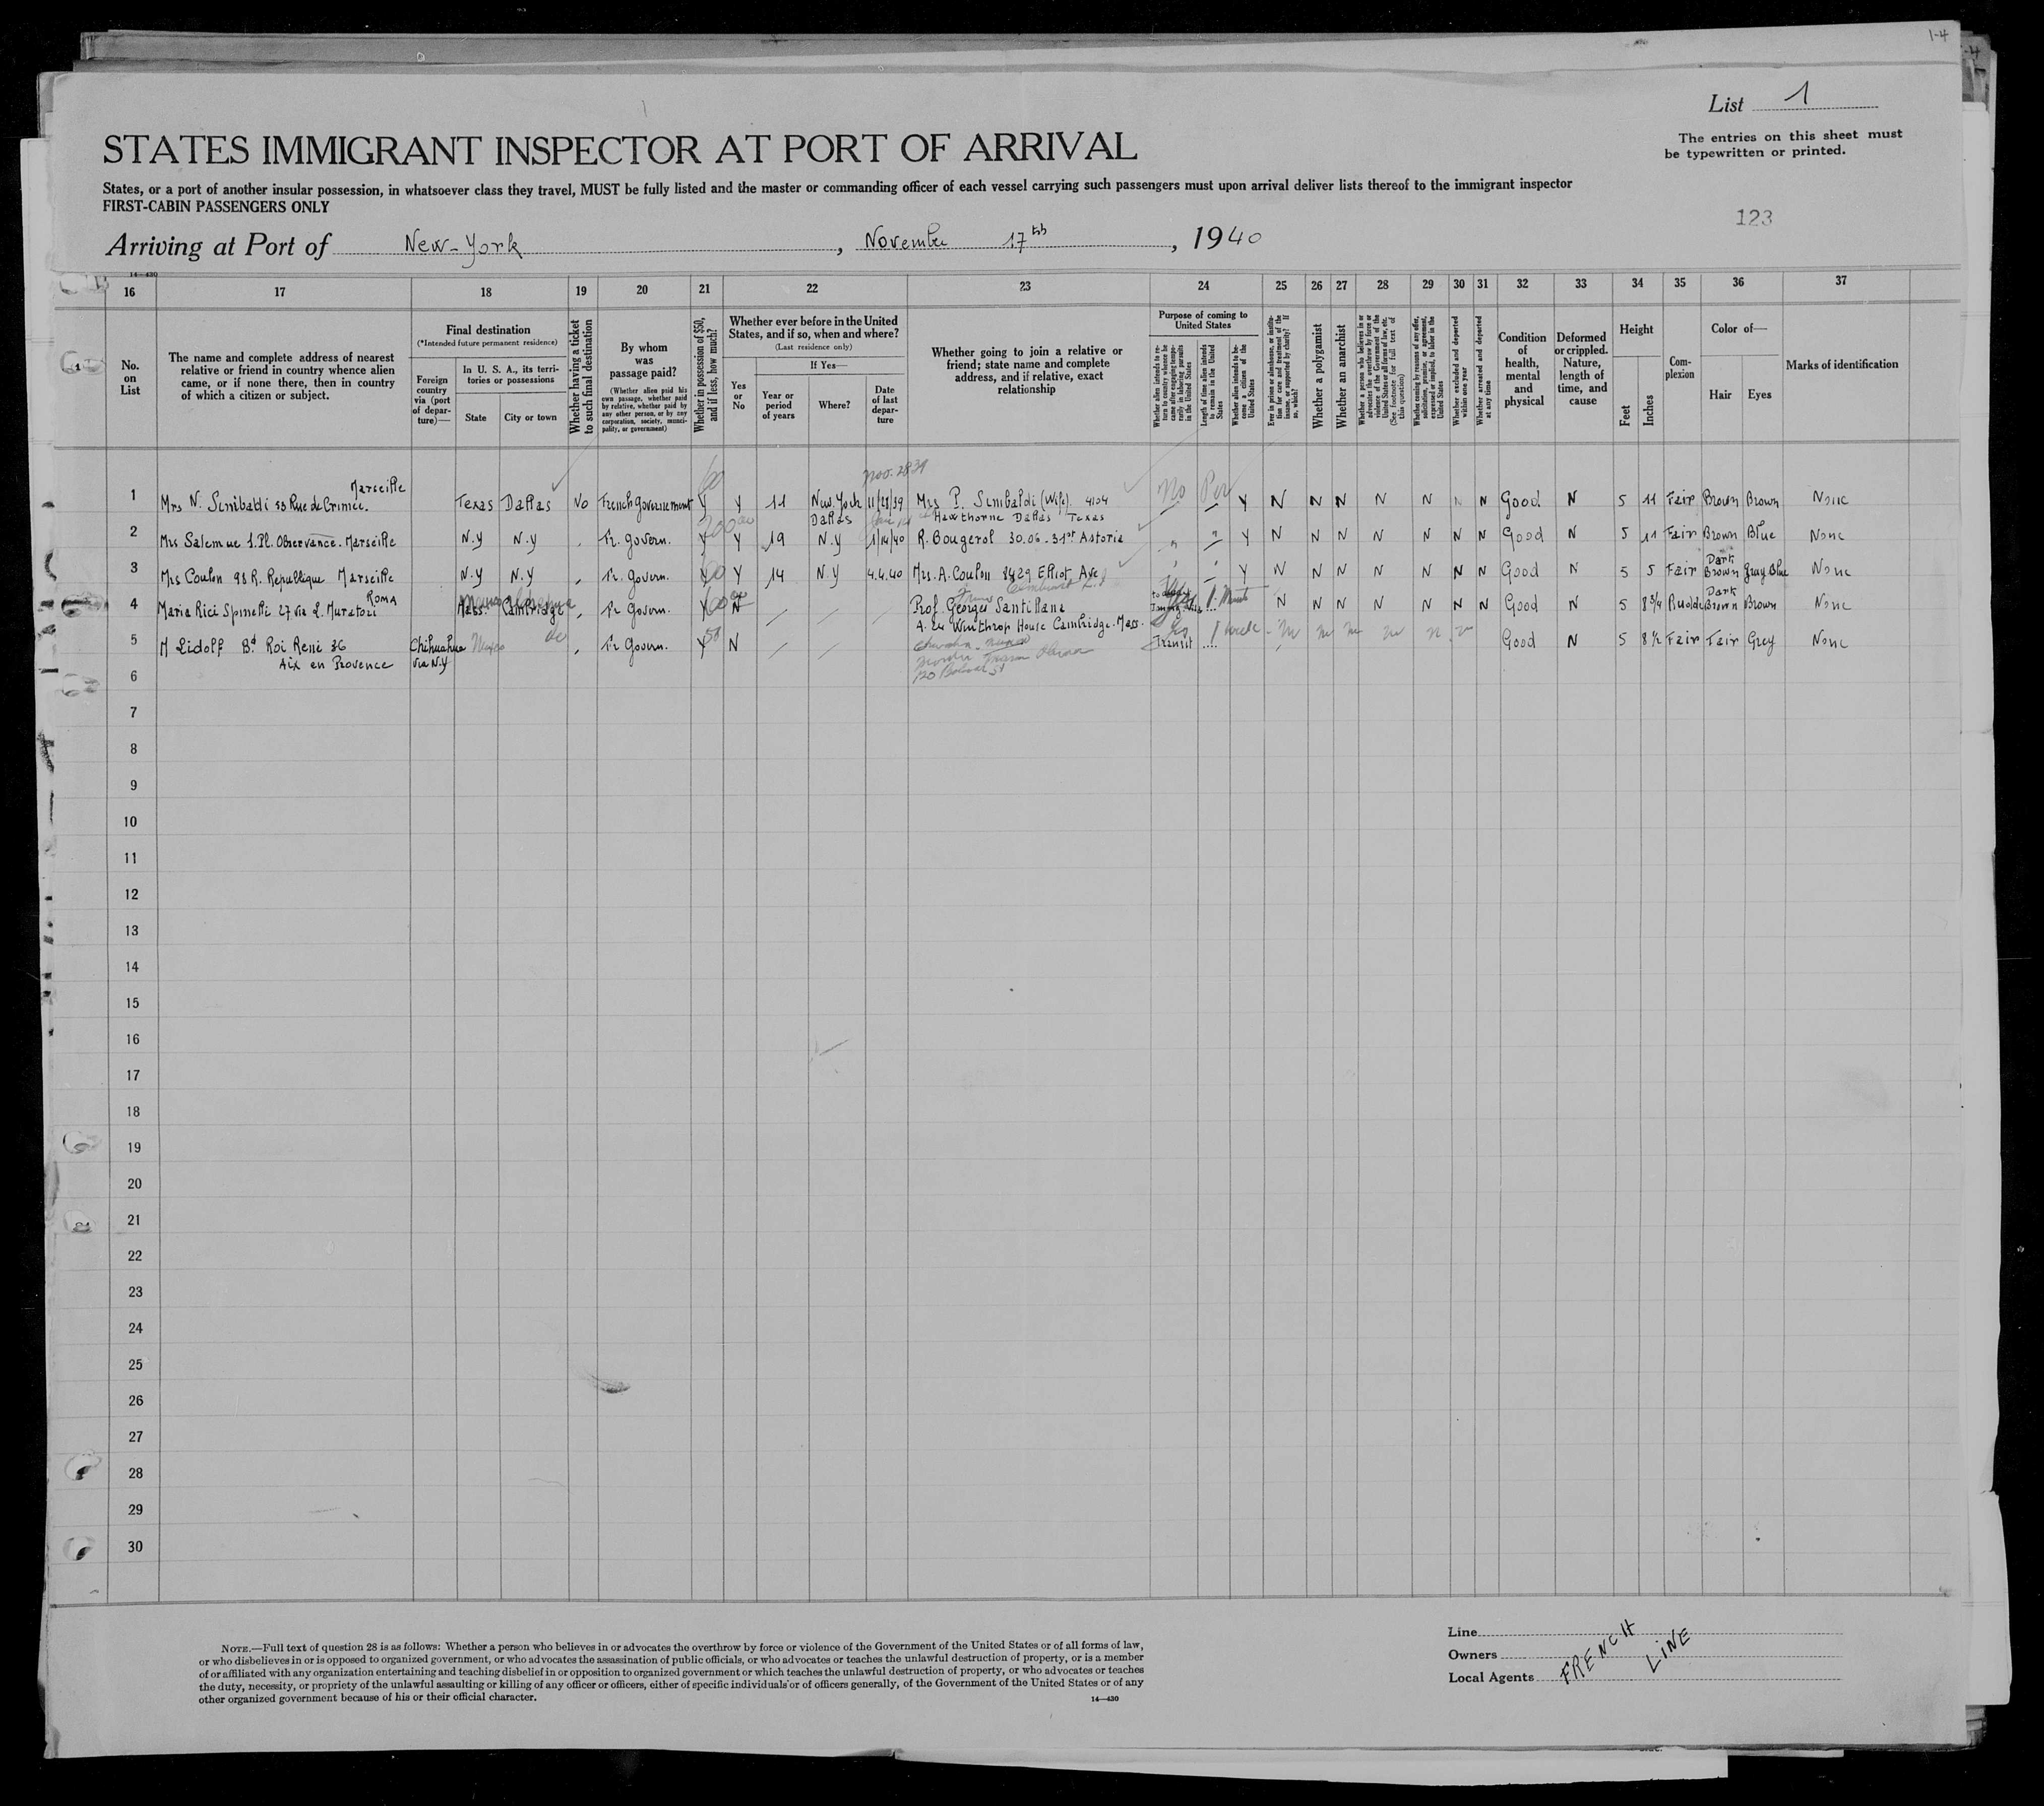 1-4
List 1
The entries on this sheet must
be typewritten or printed.
STATES IMMIGRANT INSPECTOR AT PORT OF ARRIVAL
States, or a port of another insular possession, in whatsoever class they travel, MUST be fully listed and the master or commanding officer of each vessel carrying such passengers must upon arrival deliver lists thereof to the immigrant inspector
FIRST-CABIN PASSENGERS ONLY
123
Arriving at Port of New-York, November 17th, 1940
14—430
16 17 18 19 20 21 22 23 24 25 26 27 28 29 30 31 32 33 34 35 36 37
No. on List
The name and complete address of nearest relative or friend in country whence alien came, or if none there, then in country of which a citizen or subject.
Final destination
(*Intended future permanent residence)
Foreign country via (port of departure)—
In U. S. A., its territories or possessions
State
City or town
Whether having a ticket to such final destination
By whom was passage paid?
(Whether alien paid his own passage, whether paid by relative, whether paid by any other person, or by any corporation, society, municipality, or government)
Whether in possession of $50, and if less, how much?
Whether ever before in the United States, and if so, when and where?
(Last residence only)
Yes or No
If Yes—
Year or period of years
Where?
Date of last departure
Whether going to join a relative or friend; state name and complete address, and if relative, exact relationship
Purpose of coming to United States
Whether alien intends to return to country whence he came after engaging temporarily in laboring pursuits in the United States
Length of time alien intends to remain in the United States
Whether alien intends to become a citizen of the United States
Ever in prison or almshouse, or institution for care and treatment of the insane, or supported by charity? If so, which?
Whether a polygamist
Whether an anarchist
Whether a person who believes in or advocates the overthrow by force or violence of the Government of the United States or all forms of law, etc. (See footnote for full text of this question)
Whether coming by reason of any offer, solicitation, promise, or agreement, expressed or implied, to labor in the United States
Whether excluded and deported within one year
Whether arrested and deported at any time
Condition of health, mental and physical
Deformed or crippled. Nature, length of time, and cause
Height
Feet
Inches
Complexion
Color of—
Hair
Eyes
Marks of identification
Nov. 28 39
1 Mrs N. Sinibaldi 53 Rue de Crimée. Marseille Texas Dallas No French Governement Y Y 11 New York Dallas 11/28/39 Mrs P. Sinibaldi (Wife) 4104 Hawthorne Dallas Texas No Per Y N N N N N N N Good N 5 11 Fair Brown Brown None
2 Mrs Salemne 1. Pl. Observance. Marseille N.Y N.Y Fr. Govern. Y Y 19 N.Y 1/14/40 R. Bougerol 30.06 - 31st Astoria " " Y N N N N N N N Good N 5 11 Fair Brown Blue None
3 Mrs Coulon 98 R. Republique Marseille N.Y N.Y Fr. Govern. Y 14 N.Y 4.4.40 Mrs. A. Coulon 8429 Elliot Ave Y N N N N N N N Good N 5 5 Fair Dark Brown Gray Blue None
4 Maria Rici Spinelli 27 via L. Muratori ROMA Mass. Cambridge Fr Govern. N Prof. Georges Santillana A. 24 Winthrop House Cambridge. Mass. N N N N N N N Good N 5 8 3/4 Dark Brown Brown None
5 M Lidoff Bd Roi René 36 Aix en Provence Chihuahua via N.Y Mexico Fr Govern. Y 50 N Transit 1 week Good N 5 8 1/2 Fair Fair Grey None
6
7
8
9
10
11
12
13
14
15
16
17
18
19
20
21
22
23
24
25
26
27
28
29
30
NOTE.—Full text of question 28 is as follows: Whether a person who believes in or advocates the overthrow by force or violence of the Government of the United States or of all forms of law,
or who disbelieves in or is opposed to organized government, or who advocates the assassination of public officials, or who advocates or teaches the unlawful destruction of property, or is a member
of or affiliated with any organization entertaining and teaching disbelief in or opposition to organized government or which teaches the unlawful destruction of property, or who advocates or teaches
the duty, necessity, or propriety of the unlawful assaulting or killing of any officer or officers, either of specific individuals or of officers generally, of the Government of the United States or of any
other organized government because of his or their official character.
14—430
Line
Owners
Local Agents
FRENCH LINE